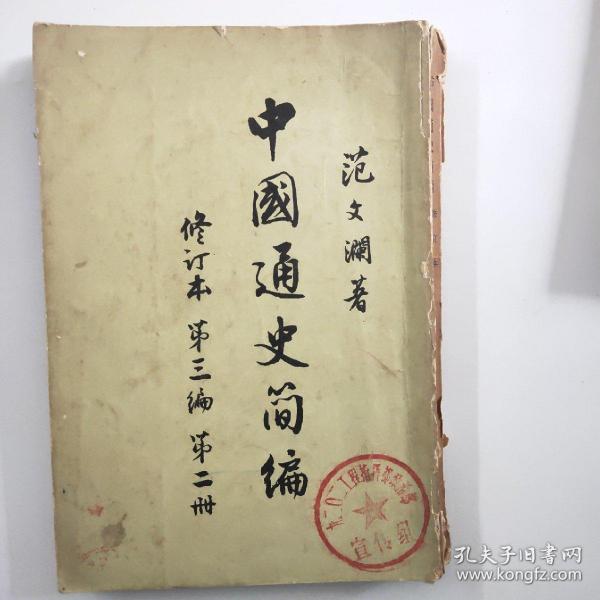 范文瀾著
中國通史简编
修订本 第三编 第二册
宣传组
孔夫子旧书网
www.kongfz.com